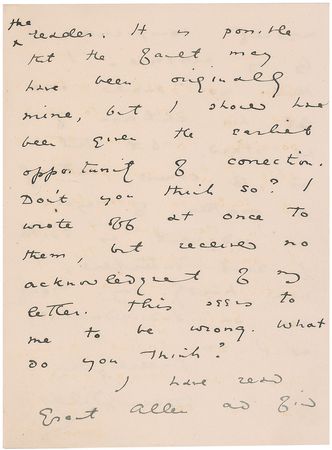 the
reader. It is possible
that the fault may
have been originally
mine, but I should have
been given the earliest
opportunity of correction.
Don't you think so? I
wrote off at once to
them, but received no
acknowledgment of my
letter. This seems to
me to be wrong. What
do you think?
I have read
Grant Allen and find